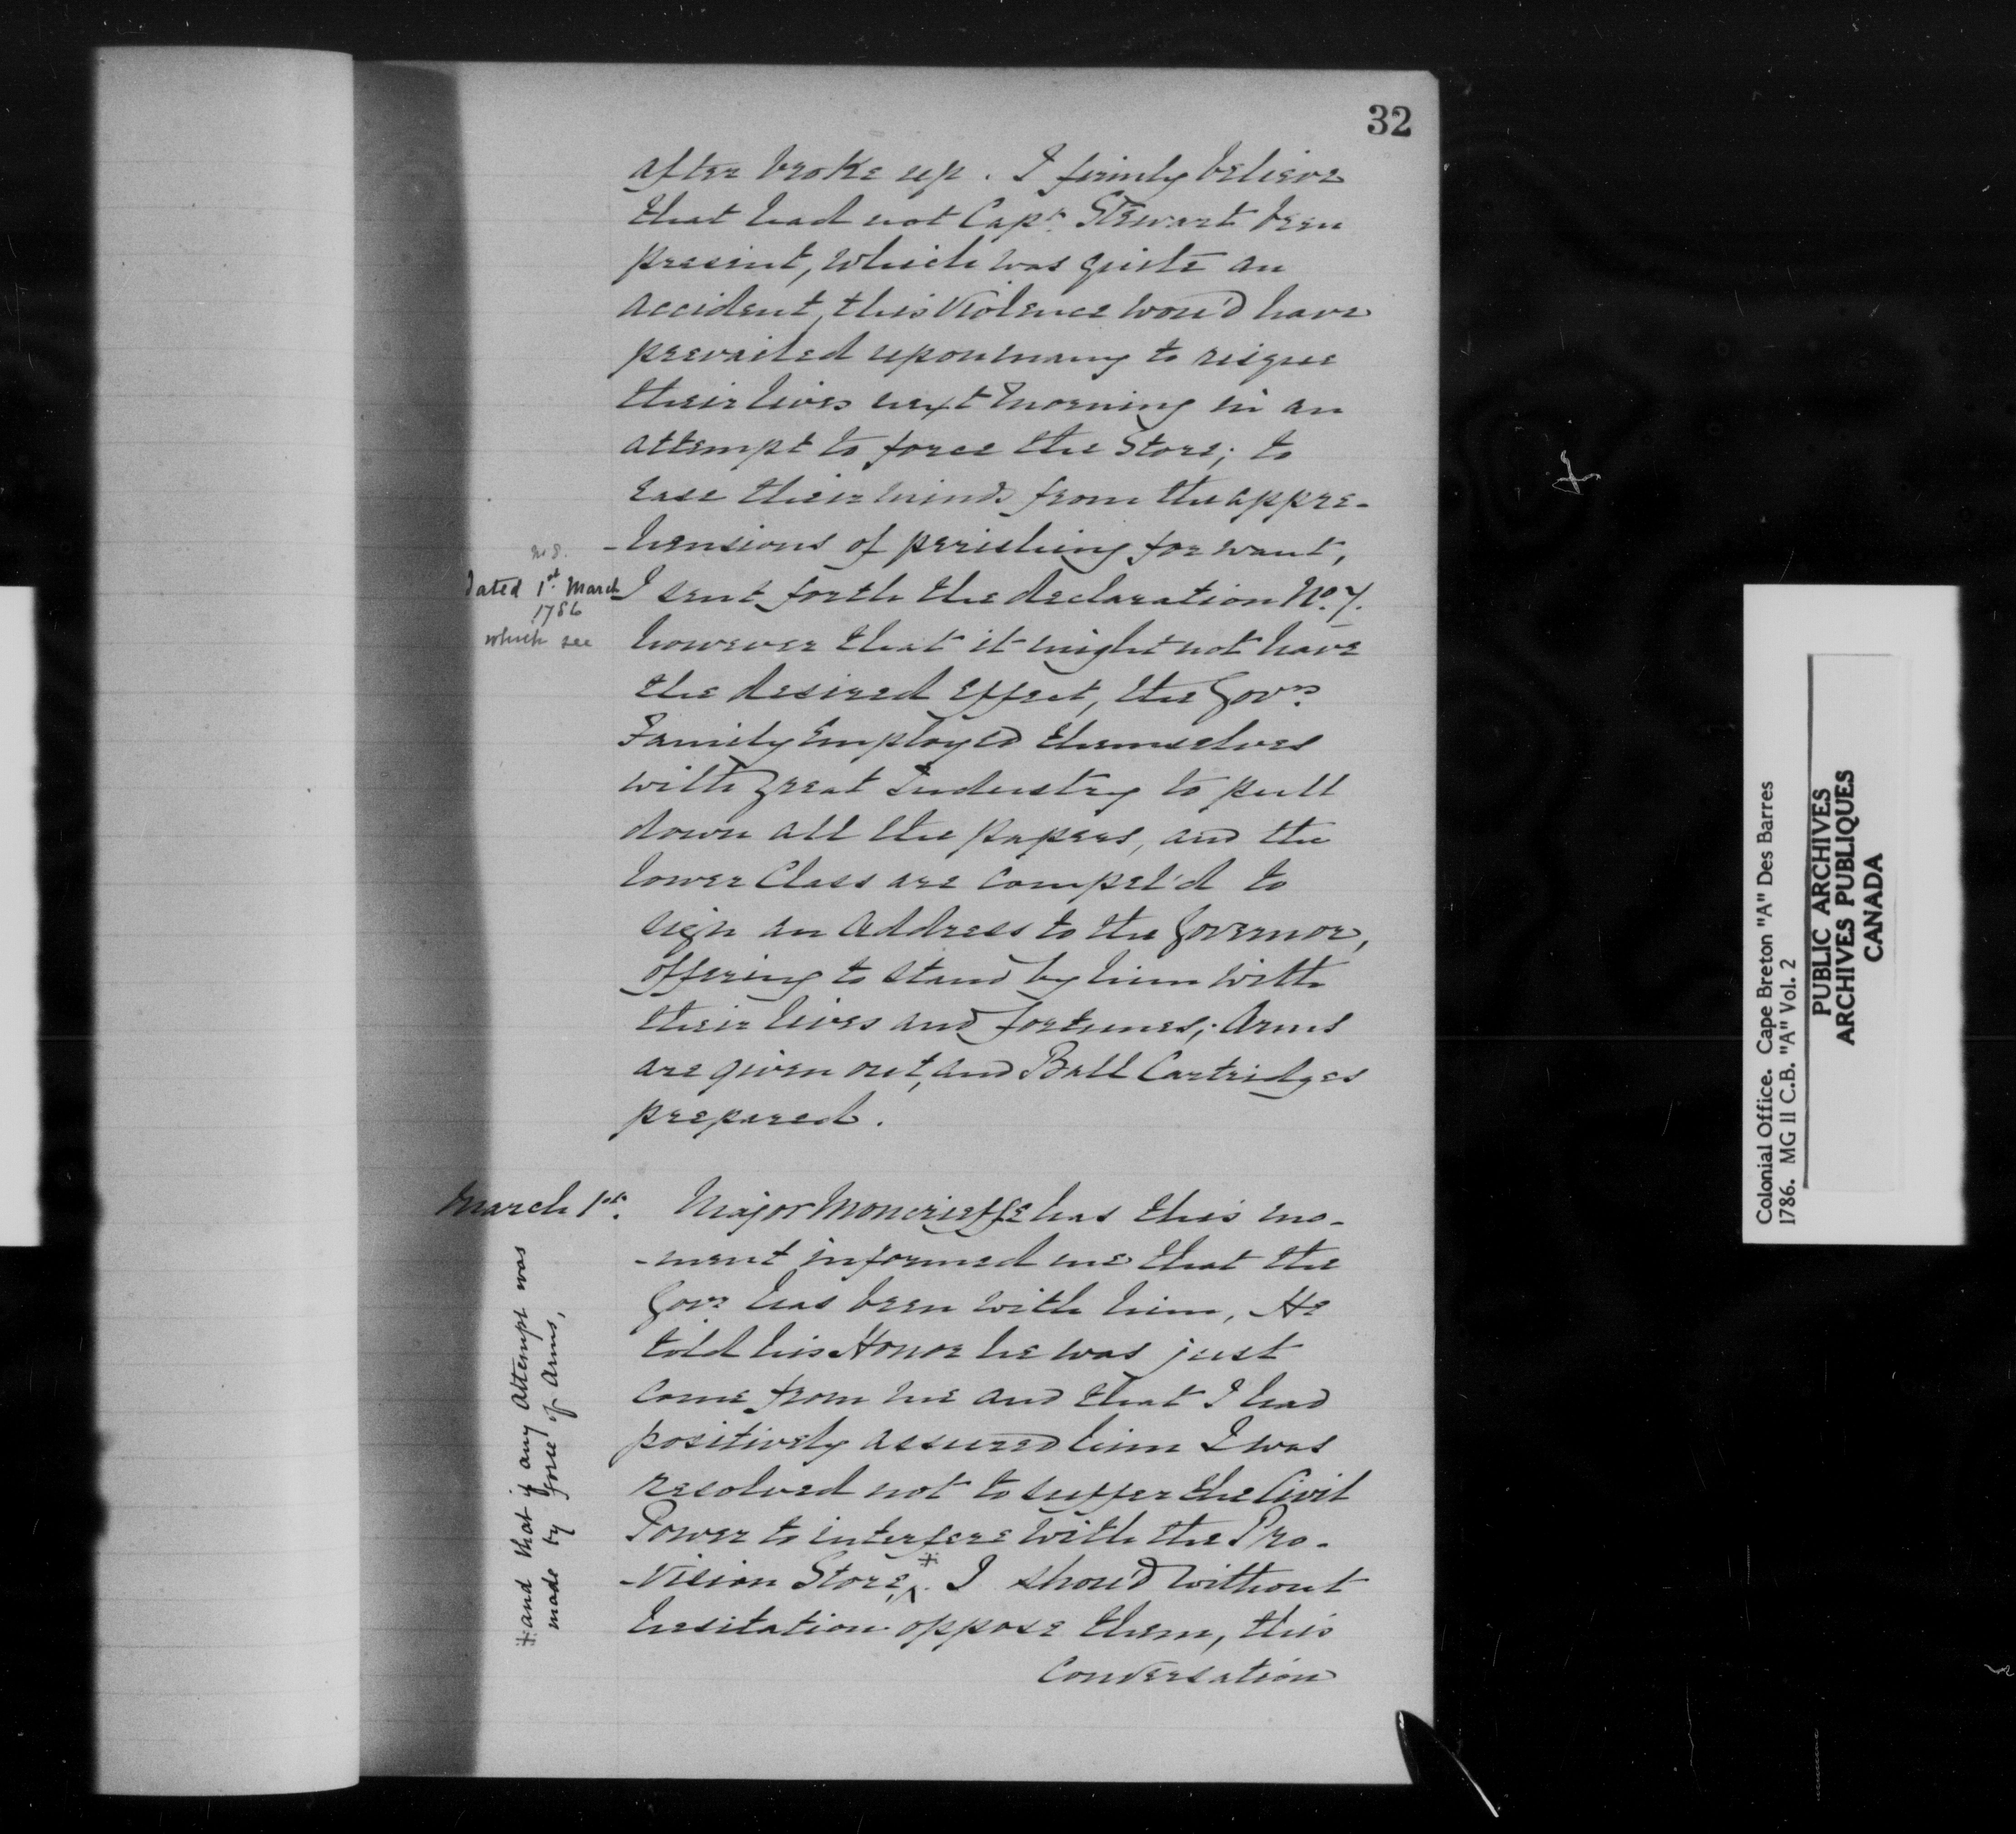 32
after broke up. I firmly believe
that had not Capt. Stewart been
present, which was quite an
accident, this Violence wou'd have
prevailed upon many to risque
their lives next Morning in an
attempt to force the Store; to
ease their minds from the appre-
-hensions of perishing for want,
No 8.
Dated 1st. March
1786
which see
I sent forth the declaration No. 7.
however that it might not have
the desired Effect, the Govrs.
Family Employed themselves
with great Industry to pull
down all the papers, and the
lower Class are compel'd to
sign an Address to the Governor,
offering to stand by him with
their lives and fortunes; Arms
are given out, and Ball Cartridges
prepared.
March 1st. Major Moncrieffe has this mo-
-ment informed me that the
Govr. has been with him, He
told his Honor he was just
come from me and that I had
positively assured him I was
resolved not to suffer the Civil
Power to interfere with the Pro-
-vision Store, ⁜ I shou'd without
hesitation oppose them, this
Conversation
⁜ and that if any Attempt was
made by force of Arms,
Colonial Office. Cape Breton "A" Des Barres
1786. MG 11 C.B. "A" Vol. 2
PUBLIC ARCHIVES
ARCHIVES PUBLIQUES
CANADA